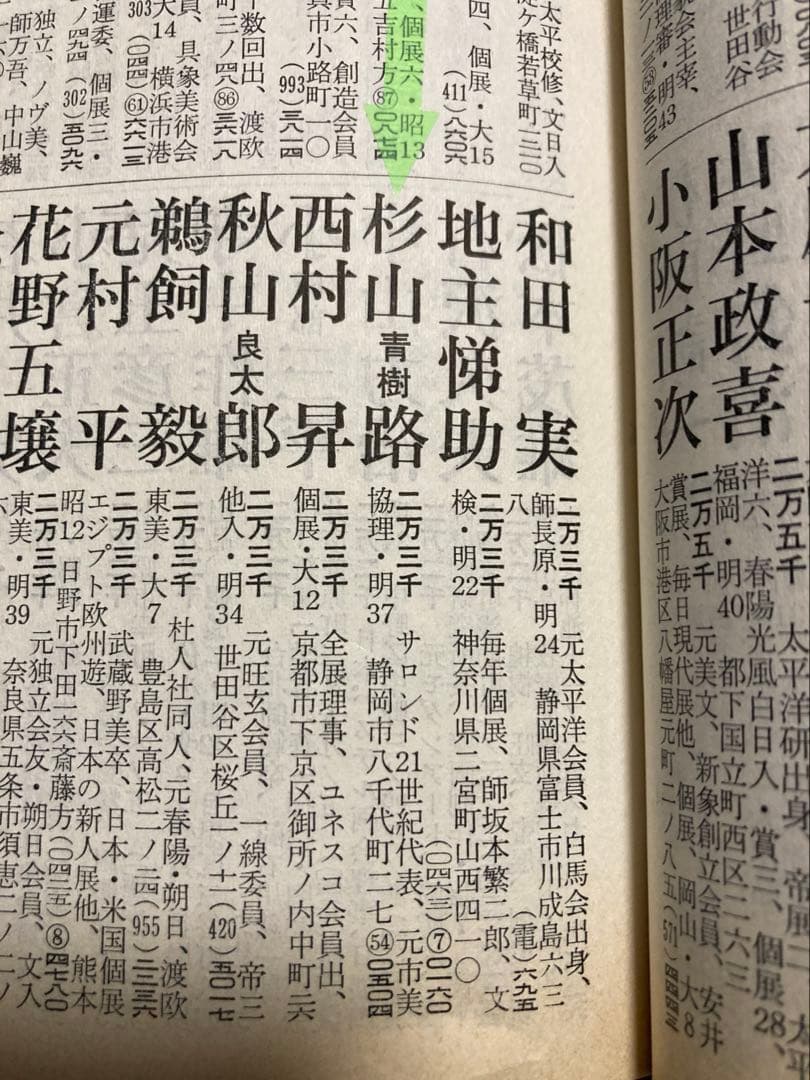 行動会
世田谷
貌会主宰、
理審・明43
山本政喜
二万五千
太平洋研出身、
洋六、春陽光風白日入・賞三、個展28、
福岡・明40
都下国立町西区二六三
小阪正次
二万五千
元美文、新象創立会員、安井
賞展、毎日現代展他、個展、岡山・大8
大阪市港区八幡屋元町二ノ八五(571)
太平校修、文日入
ケ橋若草町三一〇
四、個展・大15
(411)八六〇六
、個展六・昭13
五吉村方(87)〇八七四
賞六、創造会員
市小路町一〇
(993)三八一四
数回出、渡欧
町三ノ四八(86)三六一八
員、具象美術会
大14 横浜市港
303(044)(61)六六一三
運委、個展三・
ノ四九四(302)五〇九六
独立、ノヴ美、
師万吾、中山巍
和田実
二万三千
元太平洋会員、白馬会出身、
師長原・明24
静岡県富士市川成島六三八
(電)六九五
地主悌助
二万三千
毎年個展、師坂本繁二郎、文
検・明22
神奈川県二宮町山西四一〇
(〇四六三)⑦〇一六〇
杉山青樹路
二万三千
サロンド21世紀代表、元市美
協理・明37
静岡市八千代町二七(54)〇五〇四
西村昇
二万三千
全展理事、ユネスコ会員出、
個展・大12
京都市下京区御所ノ内中町二六
秋山良太郎
二万三千
元旺玄会員、一線委員、帝三
他入・明34
世田谷区桜丘一ノ十一(420)五〇一七
鵜飼毅
二万三千
杜人社同人、元春陽・朔日、渡欧
東美・大7
豊島区高松二ノ二四(955)二三三六
元村平
二万三千
武蔵野美卒、日本・米国個展
エジプト欧州遊、日本の新人展他、熊本
昭12
日野市下田一六六斎藤方(〇四二五)⑧四七八〇
花野五壌
二万三千
元独立会友・朔日会員、文入
東美・明39
奈良県五条市須恵二ノ二ノ
六